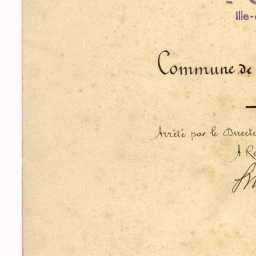 Ille-
Commune de
Arrêté par le Direct
A Re